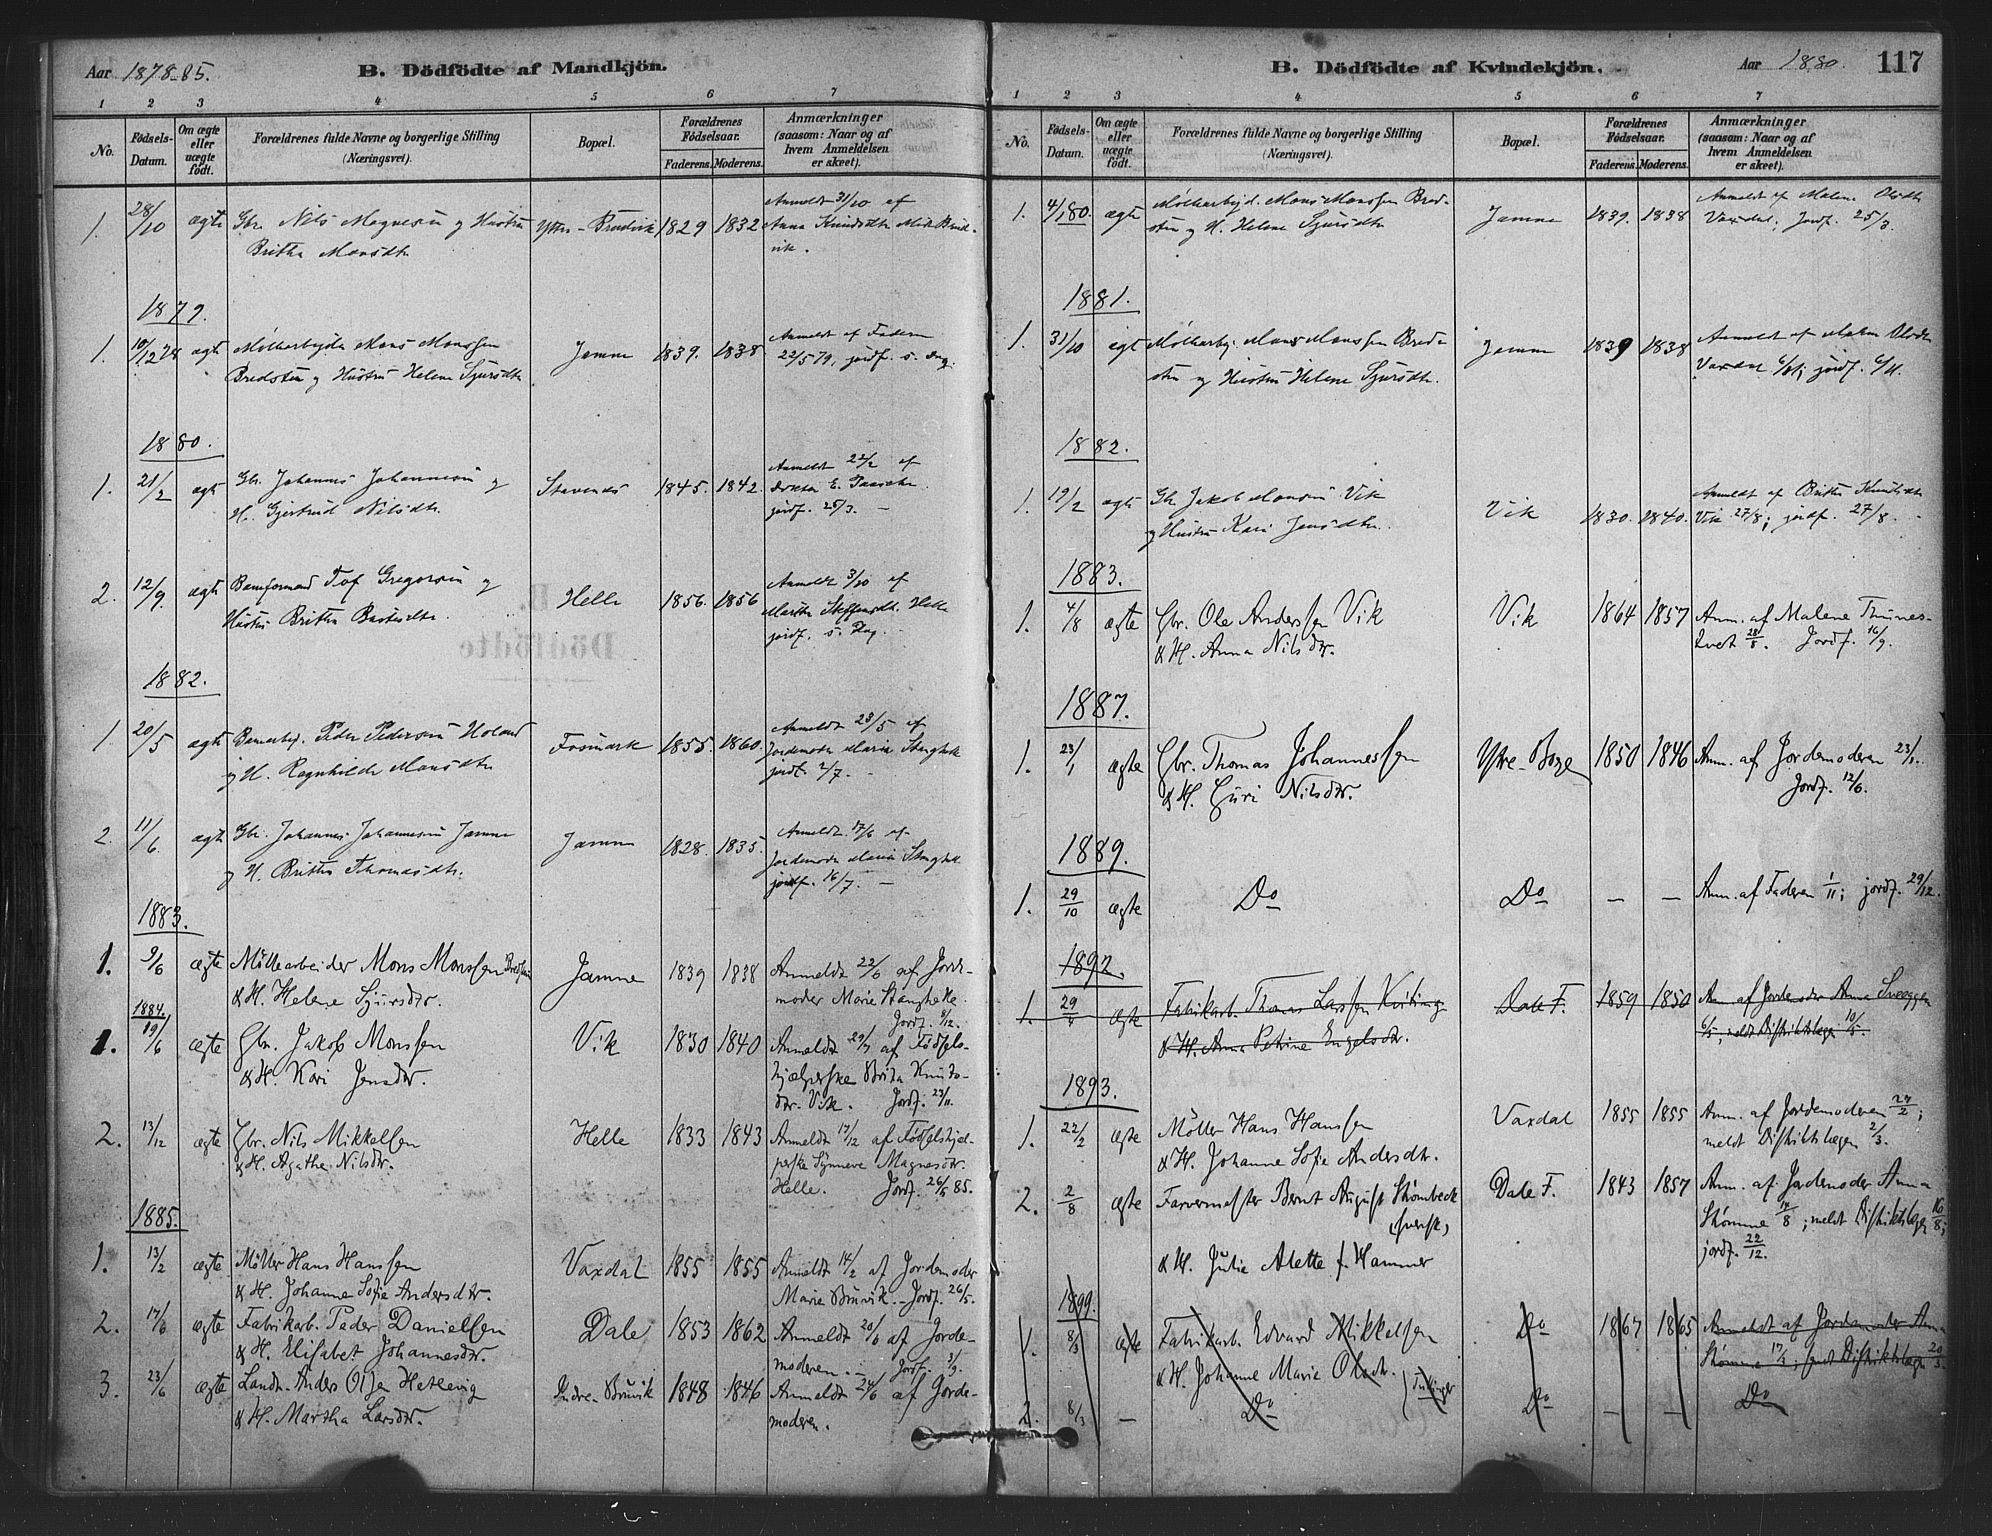 Aar 1878-85.
B. Dödfödte af Mandkjön.
1 2 3 4 5 6 7
No.
Födsels-Datum.
Om ægte eller uægte födt.
Forældrenes fulde Navne og borgerlige Stilling
(Næringsvei).
Bopæl.
Forældrenes Födselsaar.
Faderens. Moderens.
Anmærkninger
(saasom: Naar og af
hvem Anmeldelsen
er skeet).
1. 28/10 ægte Gbr. Nils Magnesen og Hustru Yttre-Bruvik 1829 1832 Anmeldt 31/10 af
Britha Monsdtr Anna Knudsdtr
vik.
1879.
1. 10/12 78 ægte Møllearbeider Mons Monssen Jamne 1839. 1838 Anmeldt af Faderen
Bredsten og Hustru Helene Sjursdtr 22/5 79, jordf. s. Dag.
1880.
1. 21/2 ægte Gbr. Johannes Johannessen og Stavenes 1845. 1842. Anmeldt 22/2 af
H. Gjertrud Nilsdtr. jordf. 25/3. -
2. 12/9. ægte Baneformand Tof Gregorsen og Helle 1856. 1856 Anmeldt 3/10 af
Hustru Britha Martha Steffensdtr. Helle
jordf. s. Dag. -
1882.
1. 20/5 ægte Banearbej. Peder Pedersen Holand Fosmark 1855. 1860. Anmeldt 23/5 af
og H. Ragnhilde Monsdtr Jordemoder Maria Stanghelle
jordf. 2/7. -
2. 11/6 ægte Gbr. Johannes Johannessen Jamne Jamne 1828. 1835. Anmeldt 17/6 af
og H. Britha Thomasdtr. Jordemoder Maria Stanghelle
jordf. 16/7. -
1883.
1. 9/6 ægte Möllearbeider Mons Monssen Bredsten Jamne 1839 1838 Anmeldt 22/6 af Jorde-
& H. Helene Sjursdtr. moder Marie Stanghelle.
Jordf. 8/12.
1884.
1. 19/6 ægte Gbr. Jakob Monssen Vik 1830 1840 Anmeldt 29/7 af Födsels-
& H. Kari Jensdtr. hjælperske Brita Knuts-
dtr. Vik. Jordf. 23/11.
2. 13/12 ægte Gbr. Nils Mikkelsen Helle 1833 1843 Anmeldt 17/12 af Födselshjæl-
& H. Agathe Nilsdtr. perske Synneve Magnesdtr.
Helle. Jordf. 26/5 85.
1885.
1. 13/2 ægte Möller Hans Hanssen Vaxdal 1855 1855 Anmeldt 14/2 af Jordemoder
& H. Johanne Sofie Andersdtr. Marie Bruvik. - Jordf. 26/5.
2. 17/6 ægte Fabrikarb. Peder Danielsen Dale 1853 1862 Anmeldt 20/6 af Jorde-
& H. Elisabet Johannesdtr. moderen. - Jordf. 3/9.
3. 23/6 ægte Landh. Anders Olsen Hetlevig Indre-Bruvik 1848 1846 Anmeldt 24/6 af Jorde-
& H. Martha Larsdtr. moderen.
B. Dödfödte af Kvindekjön.
Aar 1880. 117
1 2 3 4 5 6 7
No.
Födsels-Datum.
Om ægte eller uægte födt.
Forældrenes fulde Navne og borgerlige Stilling
(Næringsvei).
Bopæl.
Forældrenes Födselsaar.
Faderens. Moderens.
Anmærkninger
(saasom: Naar og af
hvem Anmeldelsen
er skeet).
1. 4/1 80. ægte Møllearbejd. Mons Monssen Bred- Jamne 1839. 1838 Anmeldt af Malene Olsdtr
sten og H. Helene Sjursdtr Vaxdal; jordf. 25/3.
1881.
1. 31/10 ægte Møllearbej. Mons Monssen Bred- Jamne 1839 1838 Anmeldt af Malene Olsdtr
sten og Hustru Helene Sjursdtr. Vaxdal 6/11; jordf. 6/11.
1882.
1. 19/2 ægte Gbr. Jakob Monsen Vik Vik 1830. 1840. Anmeldt af Britha Knutsdtr
og Hustru Kari Jensdtr. Vik 27/8; jordf. 27/8.
1883.
1. 4/8 ægte Gbr. Ole Anderssen Vik Vik 1864 1857 Anm. af Malene Thunes-
& H. Anna Nilsdtr. tvedt 28/8. Jordf. 16/9.
1887.
1. 23/1 ægte Gbr. Thomas Johannessen Ytre-Boge 1850 1846 Anm. af Jordemoderen 23/1.
& H. Guri Nilsdtr. Jordf. 12/6.
1889.
1. 29/10 ægte Do Do - - Anm. af Faderen 1/11; jordf. 29/12.
1892.
1. 29/4 ægte Fabrikarb. Thomas Larssen Kvitinge Dale F. 1859 1850 Anm. af Jordemoder Anna
& H. Anna Petrine Engelsdtr. 6/5, meldt Distriktslægen 10/5.
1893.
1. 22/2 ægte Möller Hans Hanssen Vaxdal 1855 1855 Anm. af Jordemoderen 27/2;
& H. Johanne Sofie Andersdtr. meldt Distriktslægen 2/3.
2. 2/8 ægte Farvermester Bernt August Strömbeck Dale F. 1843 1857 Anm. af Jordemoder Anna
(svensk) Skömme 14/8; meldt Distriktslægen 16/8;
& H. Julie Alette f. Hammer jordf. 22/12.
1899.
1. 8/3 ægte Fabrikarb. Edvard Mikkelsen Do 1867 1865 Anmeldt af Jordemoder Anna
& H. Johanne Marie Olsdtr. Skömme 17/3; sendt Distriktslægen 20/3.
(Tvillinger)
2. 8/3 - Do Do - - Do